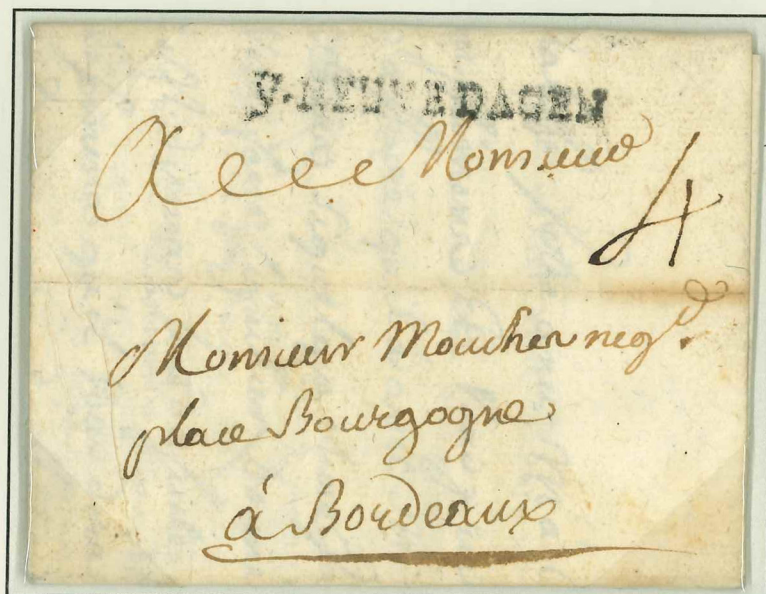 V.NEUVE DAGEN
A Monsieur
4
Monsieur Moucher negt.
place Bourgogne
á Bordeaux